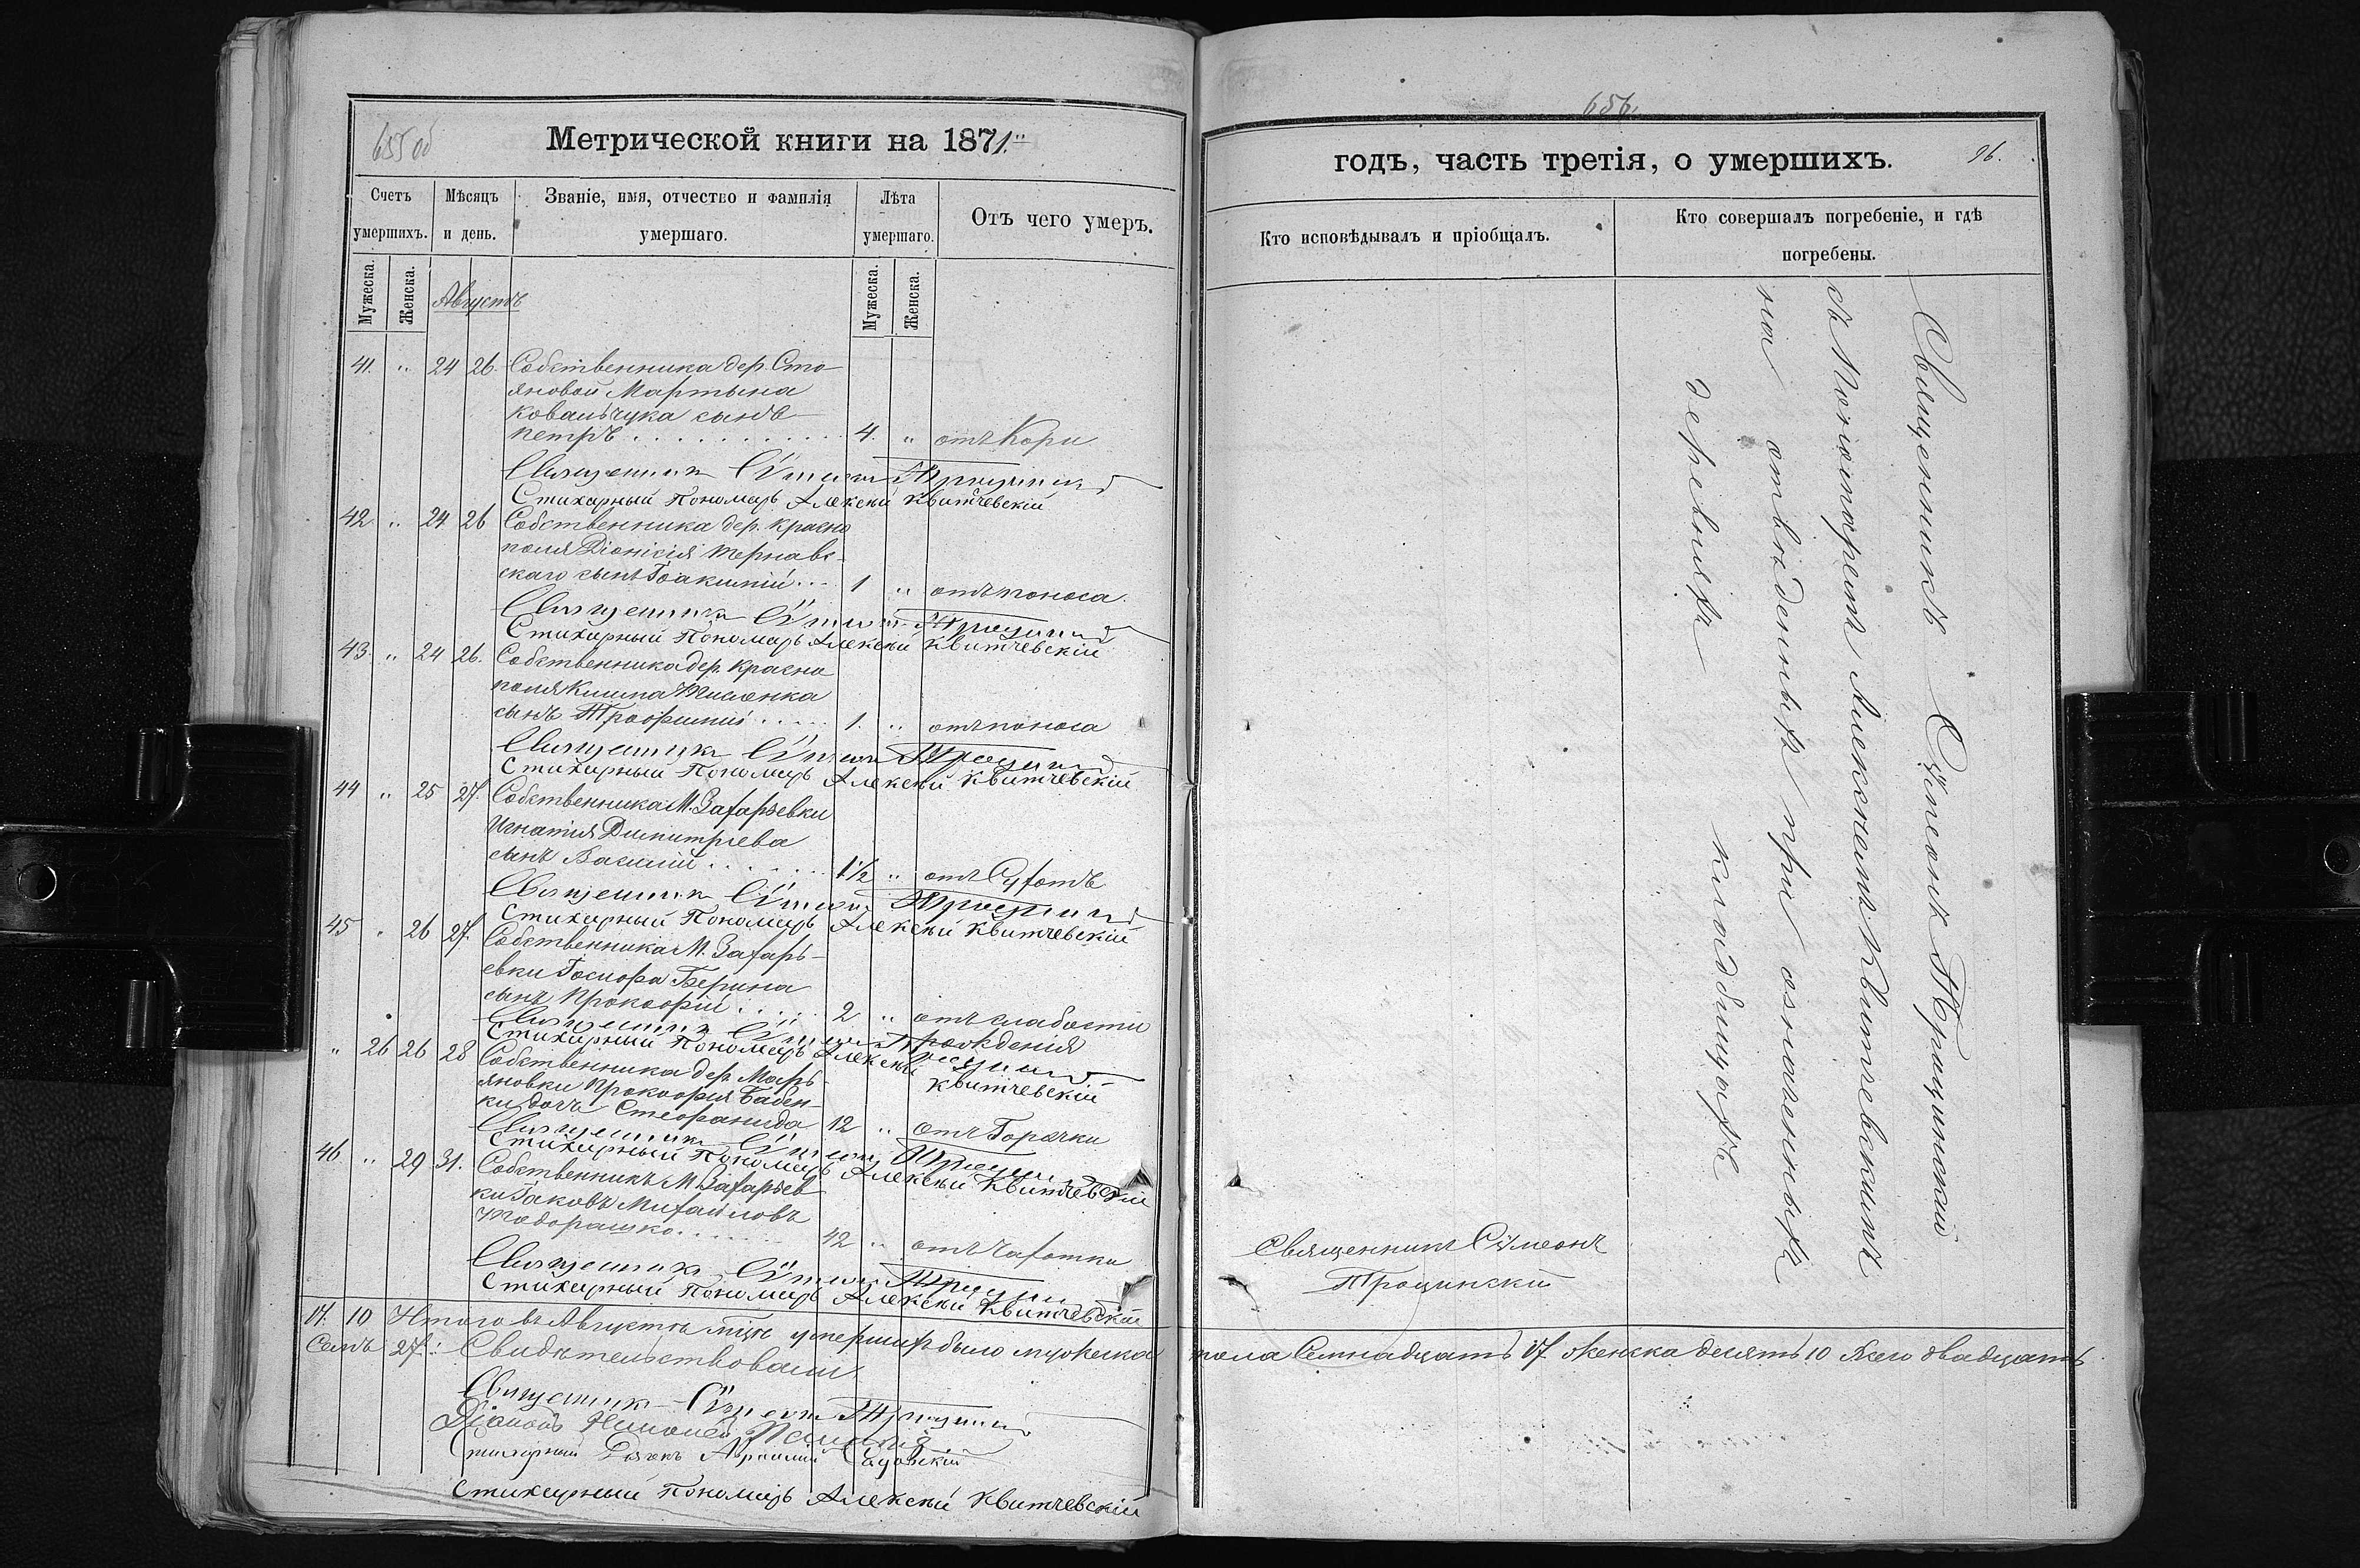 655 об
Метрической книги на 1871.
Счетъ умершихъ.
Мѣсяцъ и день.
Званіе, имя, отчество и фамилія умершаго.
Лѣта умершаго.
Отъ чего умеръ.
Мужеска.
Женска.
Августъ
Мужеска.
Женска.
41. " 24 26. Собственника дер. Сто-
яновой Мартына
Ковальчука сынъ
Петръ 4. " отъ Кори
Священникъ Сѵмеонъ Трощинскій
Стихарный Пономарь Алексѣй Квитчевскій
42. " 24 26 Собственника дер. Красно
поля Діонісія Тернавс-
скаго сынъ Іоакимъ 1 " отъ поноса.
Священникъ Сѵмеонъ Трощинскій
Стихарный Пономарь Алексѣй Квитчевскій
43. " 24 26. Собственника дер. Красно
поля Климa
сынъ Трофимъ 1. " отъ поноса
Священникъ Сѵмеонъ Трощинскій
Стихарный Пономарь Алексѣй Квитчевскій
44 " 25 27. Собственника М. Захарьевки
Игнатія Димитріева
сынъ Василій 1½ " отъ Сухотъ
Священникъ Сѵмеонъ Трощинскій
Стихарный Пономарь Алексѣй Квитчевскій
45 " 26 27. Собственника М. Захарь-
евки Іосифа Берина
сынъ Прокофій 2 " отъ слабости
рожденія
Священникъ Сѵмеонъ Трощинскій
Стихарный Пономарь Алексѣй Квитчевскій
" 26 26 28 Собственника дер. Марь-
яновки Прокофія Бабен-
ки дочь Стефанида 12 " отъ Горячки
Священникъ Сѵмеонъ Трощинскій
Стихарный Пономарь Алексѣй Квитчевскій
46 " 29 31. Собственникъ М. Захарьев
ки Іаковъ Михайловъ
Тодорашко 42 " отъ чахотки
Священникъ Сѵмеонъ Трощинскій
Стихарный Пономарь Алексѣй Квитчевскій
17. 10 Итого въ Августѣ мцѣ умершихъ было мужеска
Семь 27.: Свидѣтельствовали
Священникъ Сѵмеонъ Трощинскій
Діаконъ
Стихарный Дьячекъ Садовскій
Стихарный Пономарь Алексѣй Квитчевскій
656.
годъ, часть третія, о умершихъ.
96.
Кто исповѣдывалъ и пріобщалъ.
Кто совершалъ погребеніе, и гдѣ погребены.
Священникъ Сѵмеонъ Трощинскій
съ Пономаремъ Алексѣемъ Квитчевскимъ
на отведенныхъ при означенныхъ
деревняхъ кладбищахъ
Священникъ Сѵмеонъ
Трощинскій
пола Семнадцать 17 женска десять 10 всего двадцать